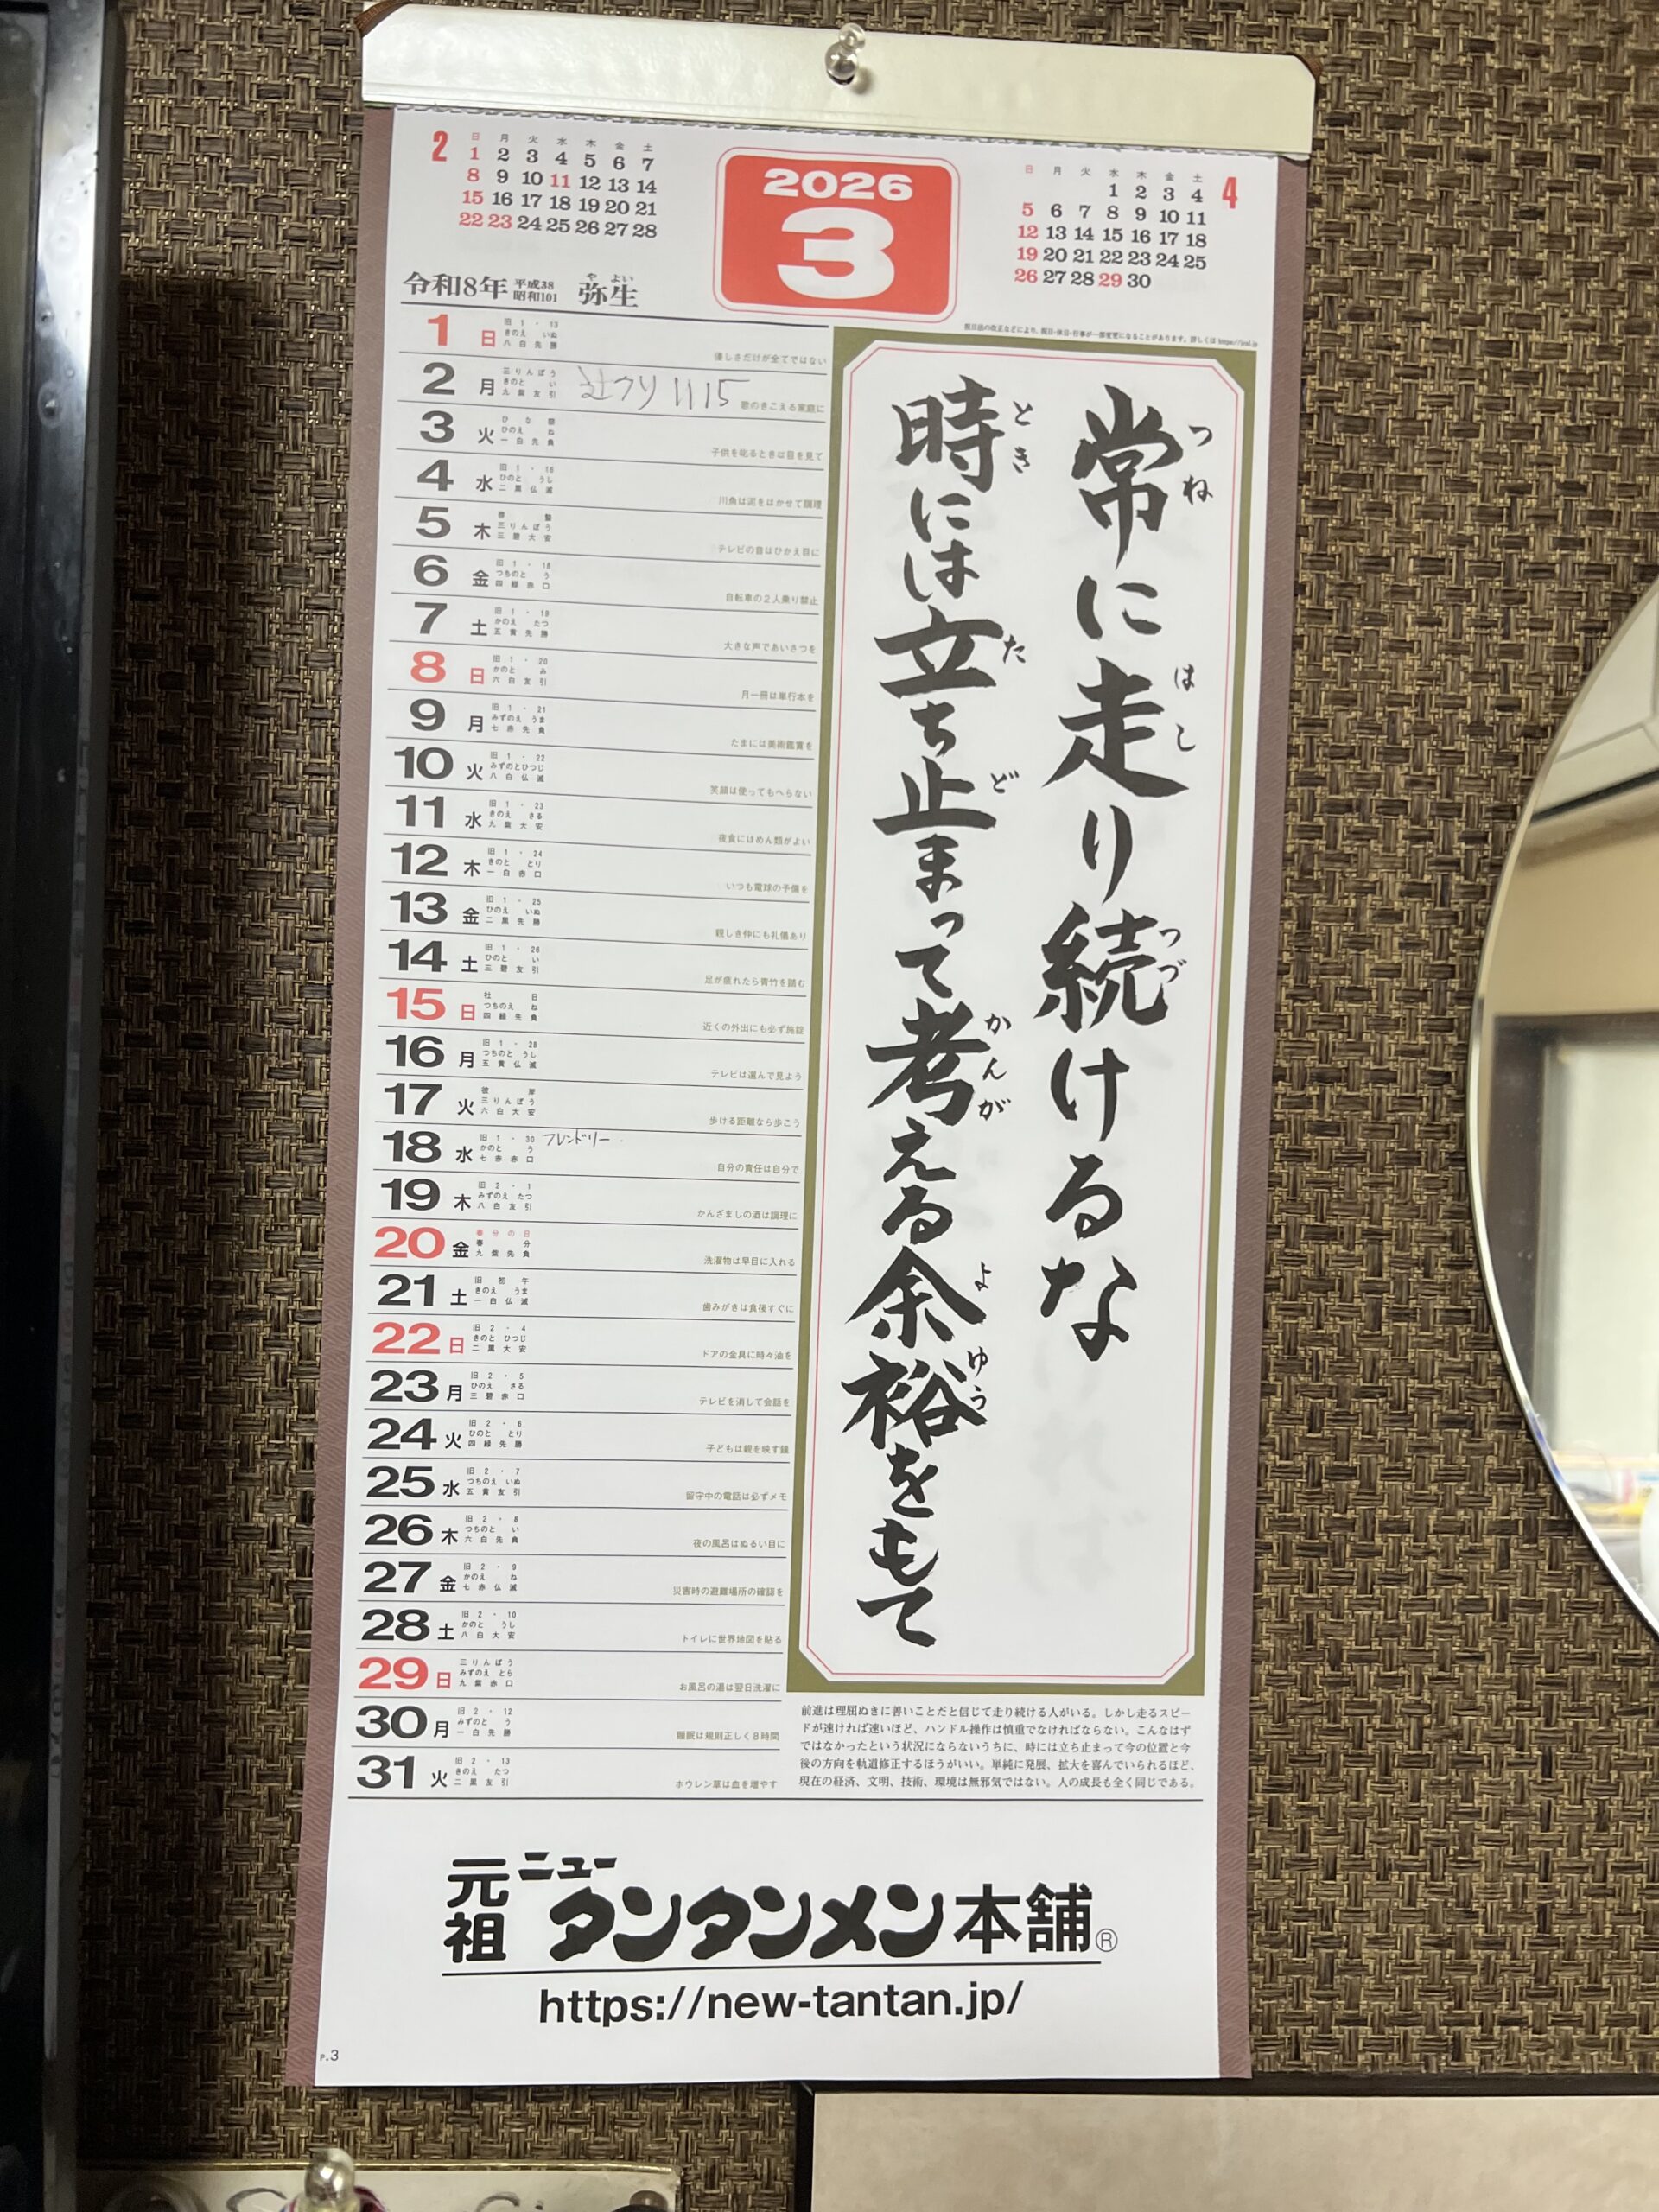 2
日 月 火 水 木 金 土
1 2 3 4 5 6 7
8 9 10 11 12 13 14
15 16 17 18 19 20 21
22 23 24 25 26 27 28
2026
3
4
日 月 火 水 木 金 土
1 2 3 4
5 6 7 8 9 10 11
12 13 14 15 16 17 18
19 20 21 22 23 24 25
26 27 28 29 30
令和8年 平成38 昭和101 弥生 やよい
1 日 旧1・13 きのえ いぬ 八白先勝 優しさだけが全てではない
2 月 三りんぼう きのと い 九紫友引 1115 歌のきこえる家庭に
3 火 ひな祭 ひのえ ね 一白先負 子供を叱るときは目を見て
4 水 旧1・16 ひのと うし 二黒仏滅 川魚は泥をはかせて調理
5 木 啓蟄 三りんぼう 三碧大安 テレビの音はひかえ目に
6 金 旧1・18 つちのと う 四緑赤口 自転車の2人乗り禁止
7 土 旧1・19 かのえ たつ 五黄先勝 大きな声であいさつを
8 日 旧1・20 かのと み 六白友引 月一冊は単行本を
9 月 旧1・21 みずのえ うま 七赤先負 たまには美術鑑賞を
10 火 旧1・22 みずのとひつじ 八白仏滅 笑顔は使ってもへらない
11 水 旧1・23 きのえ さる 九紫大安 夜食にはめん類がよい
12 木 旧1・24 きのと とり 一白赤口 いつも電球の予備を
13 金 旧1・25 ひのえ いぬ 二黒先勝 親しき仲にも礼儀あり
14 土 旧1・26 ひのと い 三碧友引 足が疲れたら青竹を踏む
15 日 社日 つちのえ ね 四緑先負 近くの外出にも必ず施錠
16 月 旧1・28 つちのと うし 五黄仏滅 テレビは選んで見よう
17 火 彼岸 三りんぼう 六白大安 歩ける距離なら歩こう
18 水 旧1・30 かのと う 七赤赤口 フレンドリー 自分の責任は自分で
19 木 旧2・1 みずのえ たつ 八白友引 かんざましの酒は調理に
20 金 春分の日 春分 九紫先負 洗濯物は早目に入れる
21 土 旧初午 きのえ うま 一白仏滅 歯みがきは食後すぐに
22 日 旧2・4 きのと ひつじ 二黒大安 ドアの金具に時々油を
23 月 旧2・5 ひのえ さる 三碧赤口 テレビを消して会話を
24 火 旧2・6 ひのと とり 四緑先勝 子どもは親を映す鏡
25 水 旧2・7 つちのえ いぬ 五黄友引 留守中の電話は必ずメモ
26 木 旧2・8 つちのと い 六白先負 夜の風呂はぬるい目に
27 金 旧2・9 かのえ ね 七赤仏滅 災害時の避難場所の確認を
28 土 旧2・10 かのと うし 八白大安 トイレに世界地図を貼る
29 日 三りんぼう みずのえ とら 九紫赤口 お風呂の湯は翌日洗濯に
30 月 旧2・12 みずのと う 一白先勝 睡眠は規則正しく8時間
31 火 旧2・13 きのえ たつ 二黒友引 ホウレン草は血を増やす
祝日法の改正などにより、祝日・休日・行事が一部変更になることがあります。詳しくは
常に走り続けるな
つね はし つづ
時には立ち止まって考える余裕をもて
とき た ど かんが よ ゆう
前進は理屈ぬきに善いことだと信じて走り続ける人がいる。しかし走るスピー
ドが速ければ速いほど、ハンドル操作は慎重でなければならない。こんなはず
ではなかったという状況にならないうちに、時には立ち止まって今の位置と今
後の方向を軌道修正するほうがいい。単純に発展、拡大を喜んでいられるほど、
現在の経済、文明、技術、環境は無邪気ではない。人の成長も全く同じである。
元祖 ニュータンタンメン本舗®
https://new-tantan.jp/
P.3